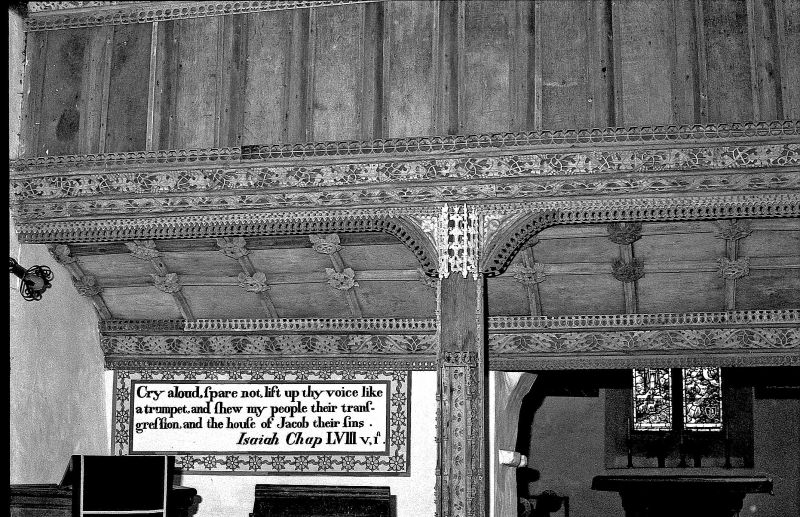 Cry aloud, ſpare not, lift up thy voice like
a trumpet, and ſhew my people their tranſ-
greſſion, and the houſe of Jacob their ſins .
Isaiah Chap LVIII v, 1ſ.